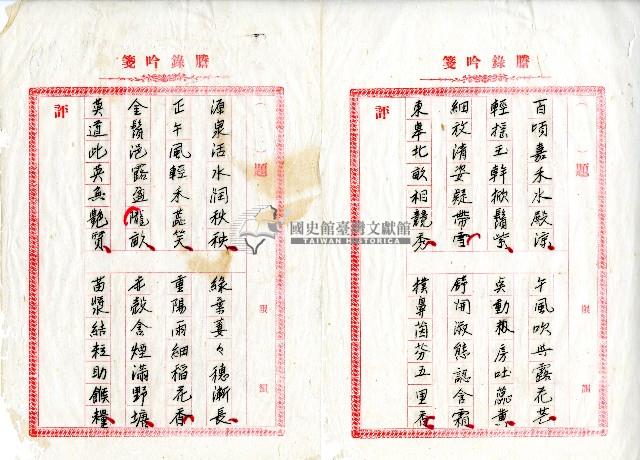 謄錄吟箋
題
限
韻
百頃嘉禾水殿涼
午風吹露花芒
輕搖玉幹掀鬚紫
動房吐蕊黃
細放清姿疑帶雪
舒開淑態認含霜
東皋北畝相競秀
撲鼻茵芬五里香
評
謄錄吟箋
題
限
韻
源泉活水潤秧秧
綠葉萋々穗漸長
正午風輕禾蕊笑
重陽雨細稻花香
金鬚浥露盈隴畝
赤殼含煙滿野塘
莫道此英無艷質
苗漿結粒助餱糧
評
國史館臺灣文獻館
TAIWAN HISTORICA